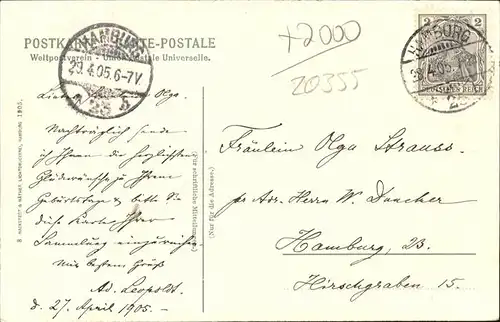 POSTKARTE - CARTE-POSTALE
Weltpostverein - Union Postale Universelle.
HAMBURG
29.4.05.6-7V
* 25 b
+2000
20355
2
2
DEUTSCHES REICH
HAMBURG
29.4.05
* 25
Olga.
Nachträglich sende
ich Ihnen die herzlichsten
Glückwünsche zu Ihrem
Geburtstage & bitte Sie
diese Karte Ihrer
Sammlung einzureihen.
Mit bestem Gruß
Ad. Leopoldt.
d. 27 April 1905.
(Für schriftliche Mitteilungen.)
(Nur für die Adresse.)
HAMBURG 1905.
Fräulein Olga Strauss.
per Adr. Herrn W. Daecher
Hamburg, 23.
Hirschgraben 15.